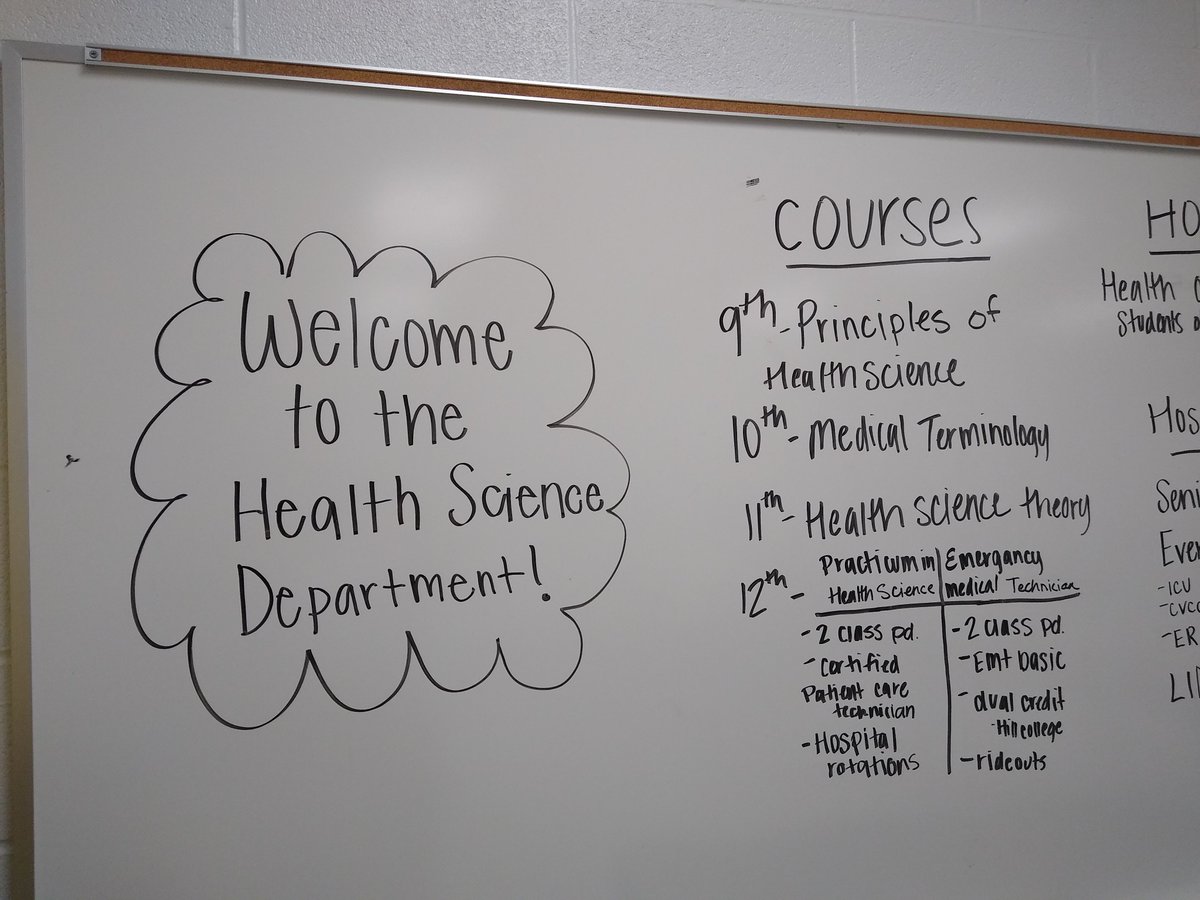 Welcome
to the
Health Science
Department!
COURSES
9th - Principles of
Health Science
10th - Medical Terminology
11th - Health Science theory
12th -
Practicum in
Health Science
- 2 class pd.
- Certified
Patient care
technician
- Hospital
rotations
Emergancy
medical Technician
- 2 class pd.
- Emt basic
- dual credit
- Hill college
- rideouts
HO
Health
Students
Hos
Seni
Ever
- ICU
- CVCC
- ER